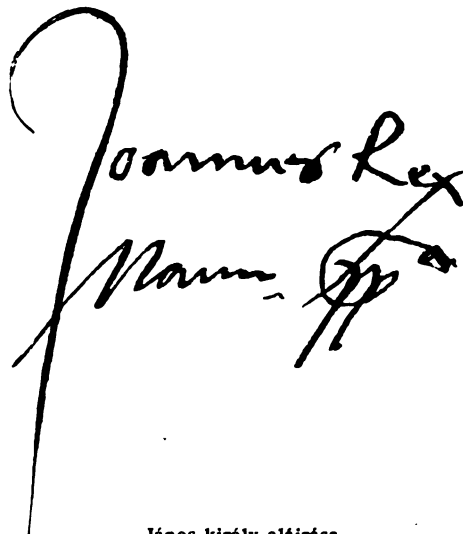 Joannes Rex
Manu ppa
János király aláírása